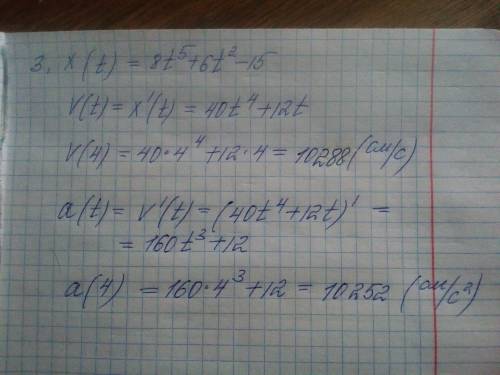 3. x(t) = 8t⁵+6t²-15
v(t) = x'(t) = 40t⁴+12t
v(4) = 40·4⁴+12·4 = 10288 (см/с)
a(t) = v'(t) = (40t⁴+12t)' =
= 160t³+12
a(4) = 160·4³+12 = 10252 (см/с²)